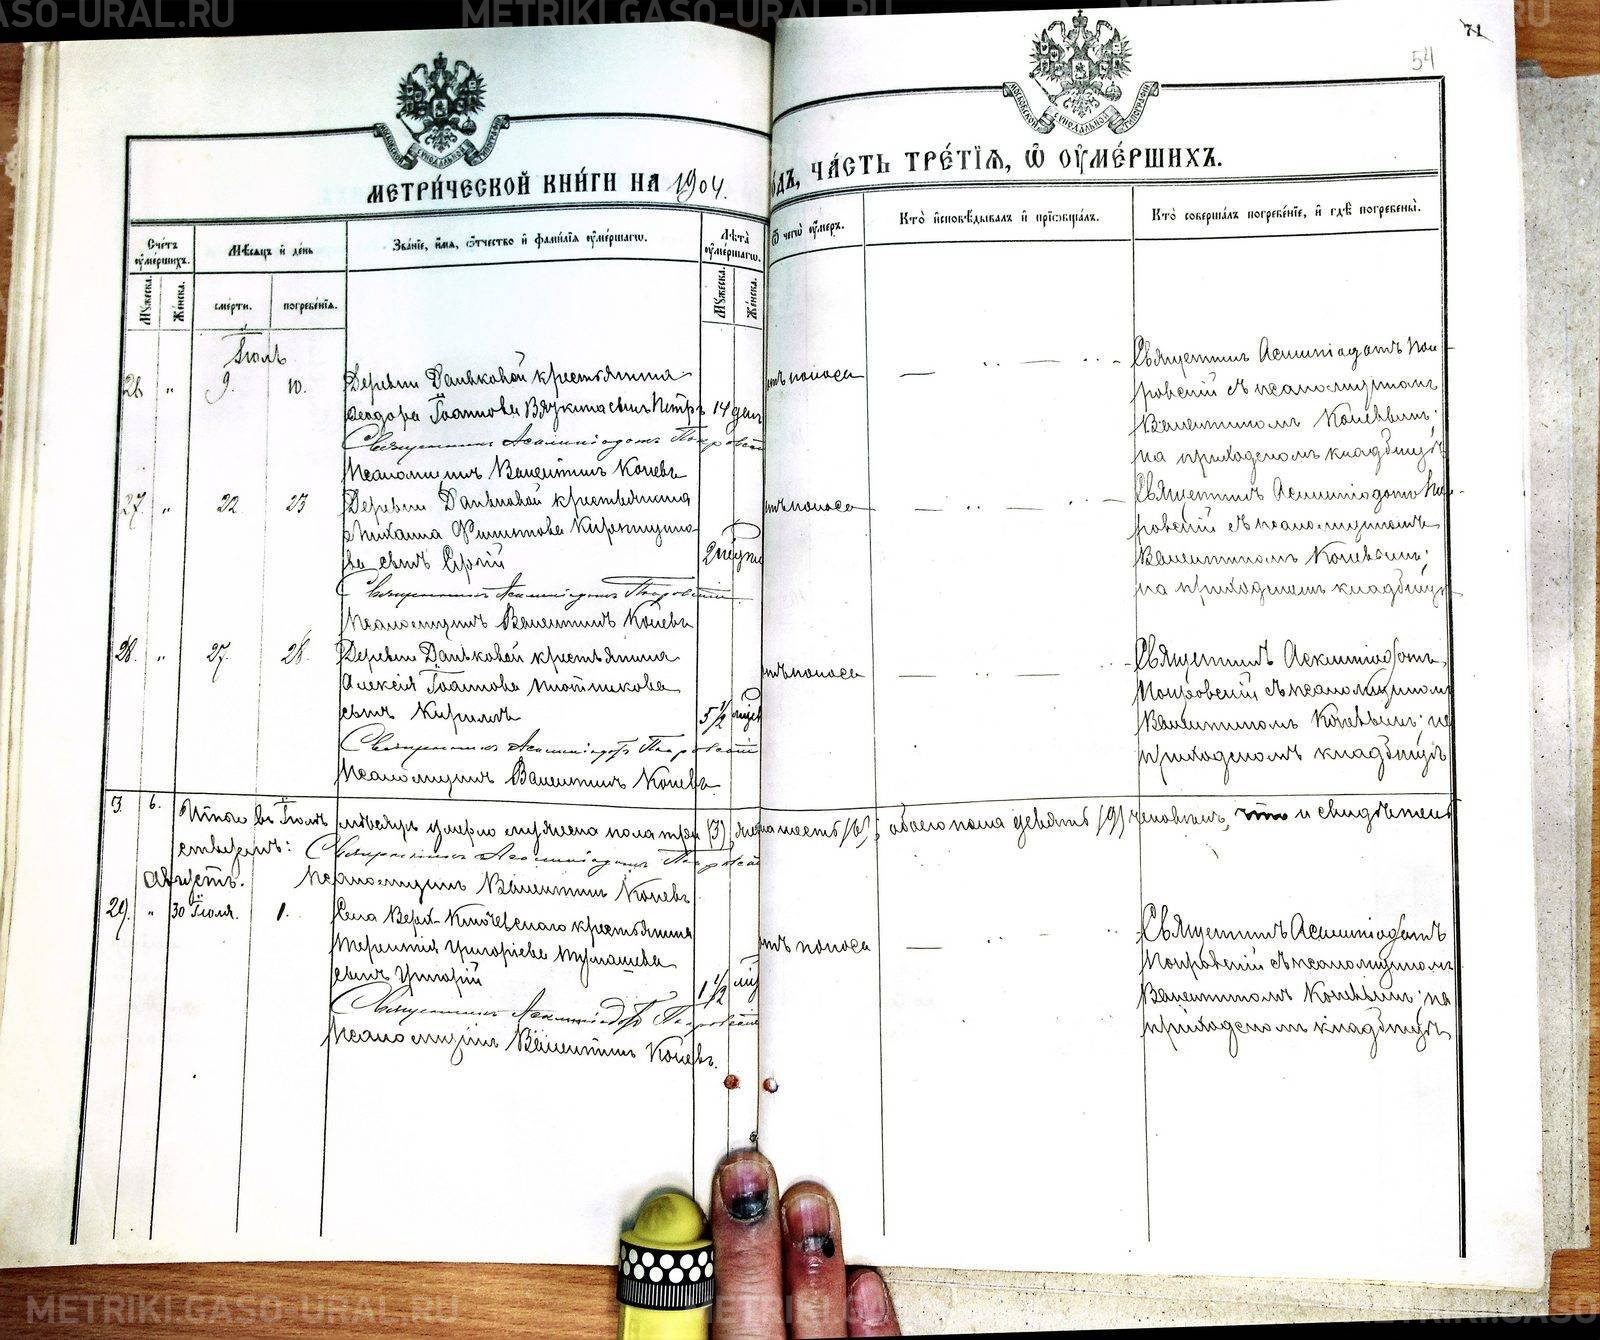 METRIKI.GASO-URAL.RU
71
54
МОСКОВСКОЙ СИНОДАЛЬНОЙ ТИПОГРАФІИ
МОСКОВСКОЙ СИНОДАЛЬНОЙ ТИПОГРАФІИ
МЕТРИ́ЧЕСКОЙ КНИ́ГИ НА 1904.
ОДЪ, ЧА́СТЬ ТРЕ́ТІѦ, Ѽ ОУ҆МЕ́РШИХЪ.
Счетъ оумершихъ.
Мѣсяцъ и день
Званіе, имя, отчество и фамилія оумершагѡ.
Лѣта оумершагѡ.
Ѿ чегѡ оумеръ.
Кто исповѣдывалъ и пріобщалъ.
Кто совершалъ погребеніе, и гдѣ погребены.
Мужеска.
Женска.
смерти.
погребенія.
Мужеска.
Женска.
Іюль
26 " 9. 10.
Деревни Даньковой крестьянина
Ѳеодора Іоаннова Вяткина сынъ Петръ 14 дней
Священникъ Асклипіодотъ Покровскій
Псаломщикъ Валентинъ Коневъ
отъ поноса
Священникъ Асклипіодотъ Пок-
ровскій съ псаломщикомъ
Валентиномъ Коневымъ;
на приходскомъ кладбищѣ
27. " 22 23
Деревни Даньковой крестьянина
Михаила Филиппова
ва сынъ Сергій
2 недѣли
Священникъ Асклипіодотъ Покровскій
Псаломщикъ Валентинъ Коневъ
отъ поноса
Священникъ Асклипіодотъ Пок-
ровскій съ псаломщикомъ
Валентиномъ Коневымъ;
на приходскомъ кладбищѣ
28. " 27. 28.
Деревни Даньковой крестьянина
Алексія Іоаннова Плотникова
сынъ Кириллъ
5 1/2
Священникъ Асклипіодотъ Покровскій
Псаломщикъ Валентинъ Коневъ.
отъ поноса
Священникъ Асклипіодотъ
Покровскій съ псаломщикомъ
Валентиномъ Коневымъ; на
приходскомъ кладбищѣ
3. 6. Итого въ Іюлѣ мѣсяцѣ умерло мужеска пола три (3), женска шесть (6), обоего пола девять (9) человѣкъ, что и свидѣтель
ствуемъ: Священникъ Асклипіодотъ Покровскій
Псаломщикъ Валентинъ Коневъ
Августъ.
29. " 30 Іюля. 1.
Села Верх-Ключевскаго крестьянина
Терентія Григорьева Тумашева
сынъ Григорій
1 1/2
Священникъ Асклипіодотъ Покровскій
Псаломщикъ Валентинъ Коневъ.
отъ поноса
Священникъ Асклипіодотъ
Покровскій съ псаломщикомъ
Валентиномъ Коневымъ; на
приходскомъ кладбищѣ
METRIKI.GASO-URAL.RU